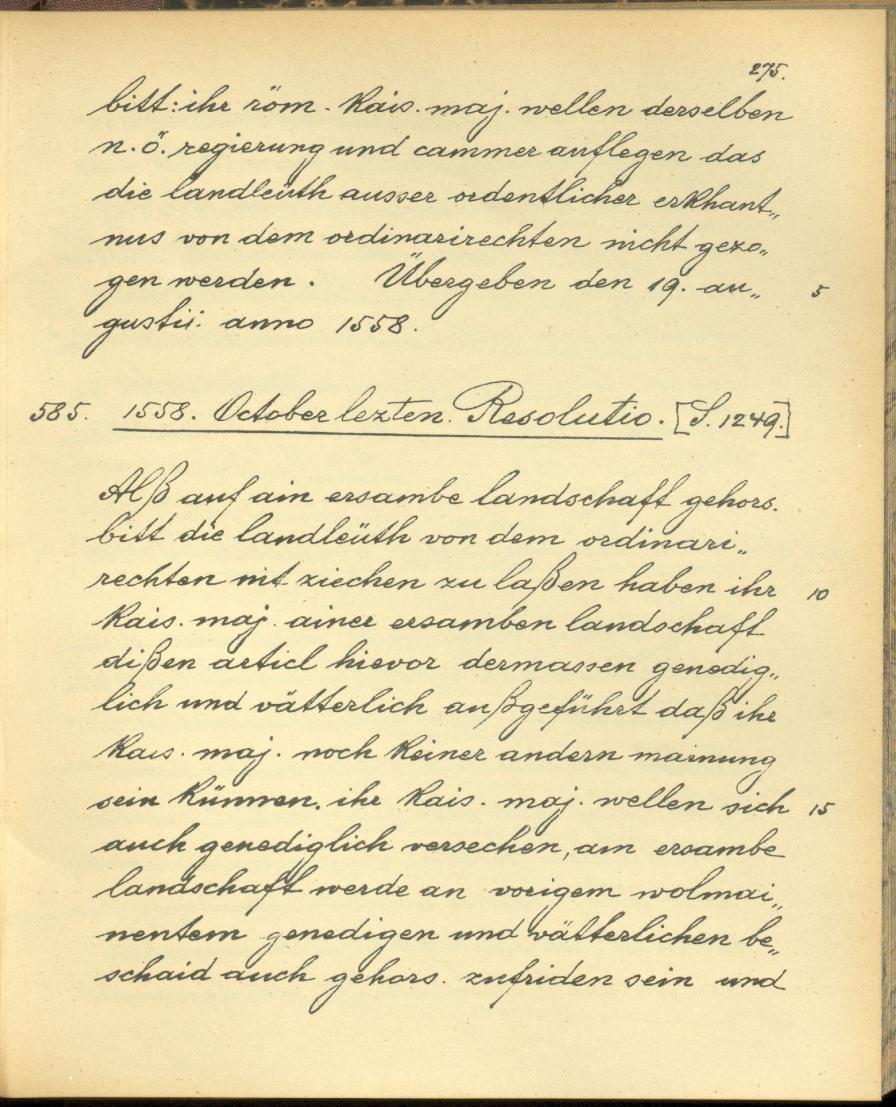 275.
bitt: ihr röm. kais. maj. wellen derselben
n. ö. regierung und cammer auflegen das
die landleüth ausser ordentlicher erkhant„
nus von dem ordinarirechten nicht gezo„
gen werden. Übergeben den 19. au„ 5
gustii: anno 1558.
585. 1558. October lezten. Resolutio. [S. 1249.]
Alß auf ain ersambe landschaft gehors.
bitt die landleüth von dem ordinari„
rechten nit ziechen zu laßen haben ihr 10
kais. maj. ainer ersamben landschaft
dißen articl hievor dermassen genedig„
lich und vätterlich außgeführt daß ihr
kais. maj. noch keiner andern mainung
sein künnen. ihr kais. maj. wellen sich 15
auch genediglich versechen, ain ersambe
landschaft werde an vorigem wolmai„
nentem genedigen und vätterlichen be„
schaid auch gehors. zufriden sein und